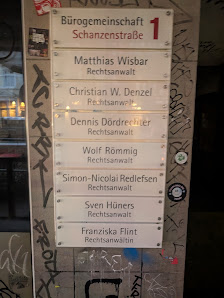 Bürogemeinschaft
Schanzenstraße 1
Matthias Wisbar
Rechtsanwalt
Christian W. Denzel
Rechtsanwalt
Dennis Dördrechter
Rechtsanwalt
Wolf Römmig
Rechtsanwalt
Simon-Nicolai Redlefsen
Rechtsanwalt
Sven Hüners
Rechtsanwalt
Franziska Flint
Rechtsanwältin